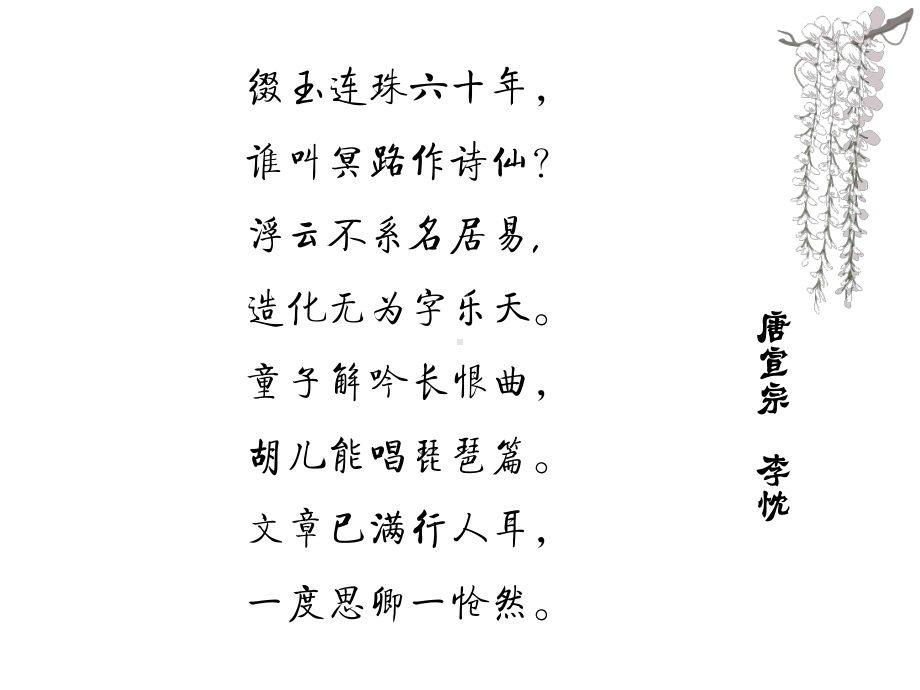 缀玉连珠六十年，
谁叫冥路作诗仙？
浮云不系名居易，
造化无为字乐天。
童子解吟长恨曲，
胡儿能唱琵琶篇。
文章已满行人耳，
一度思卿一怆然。
唐宣宗 李忱